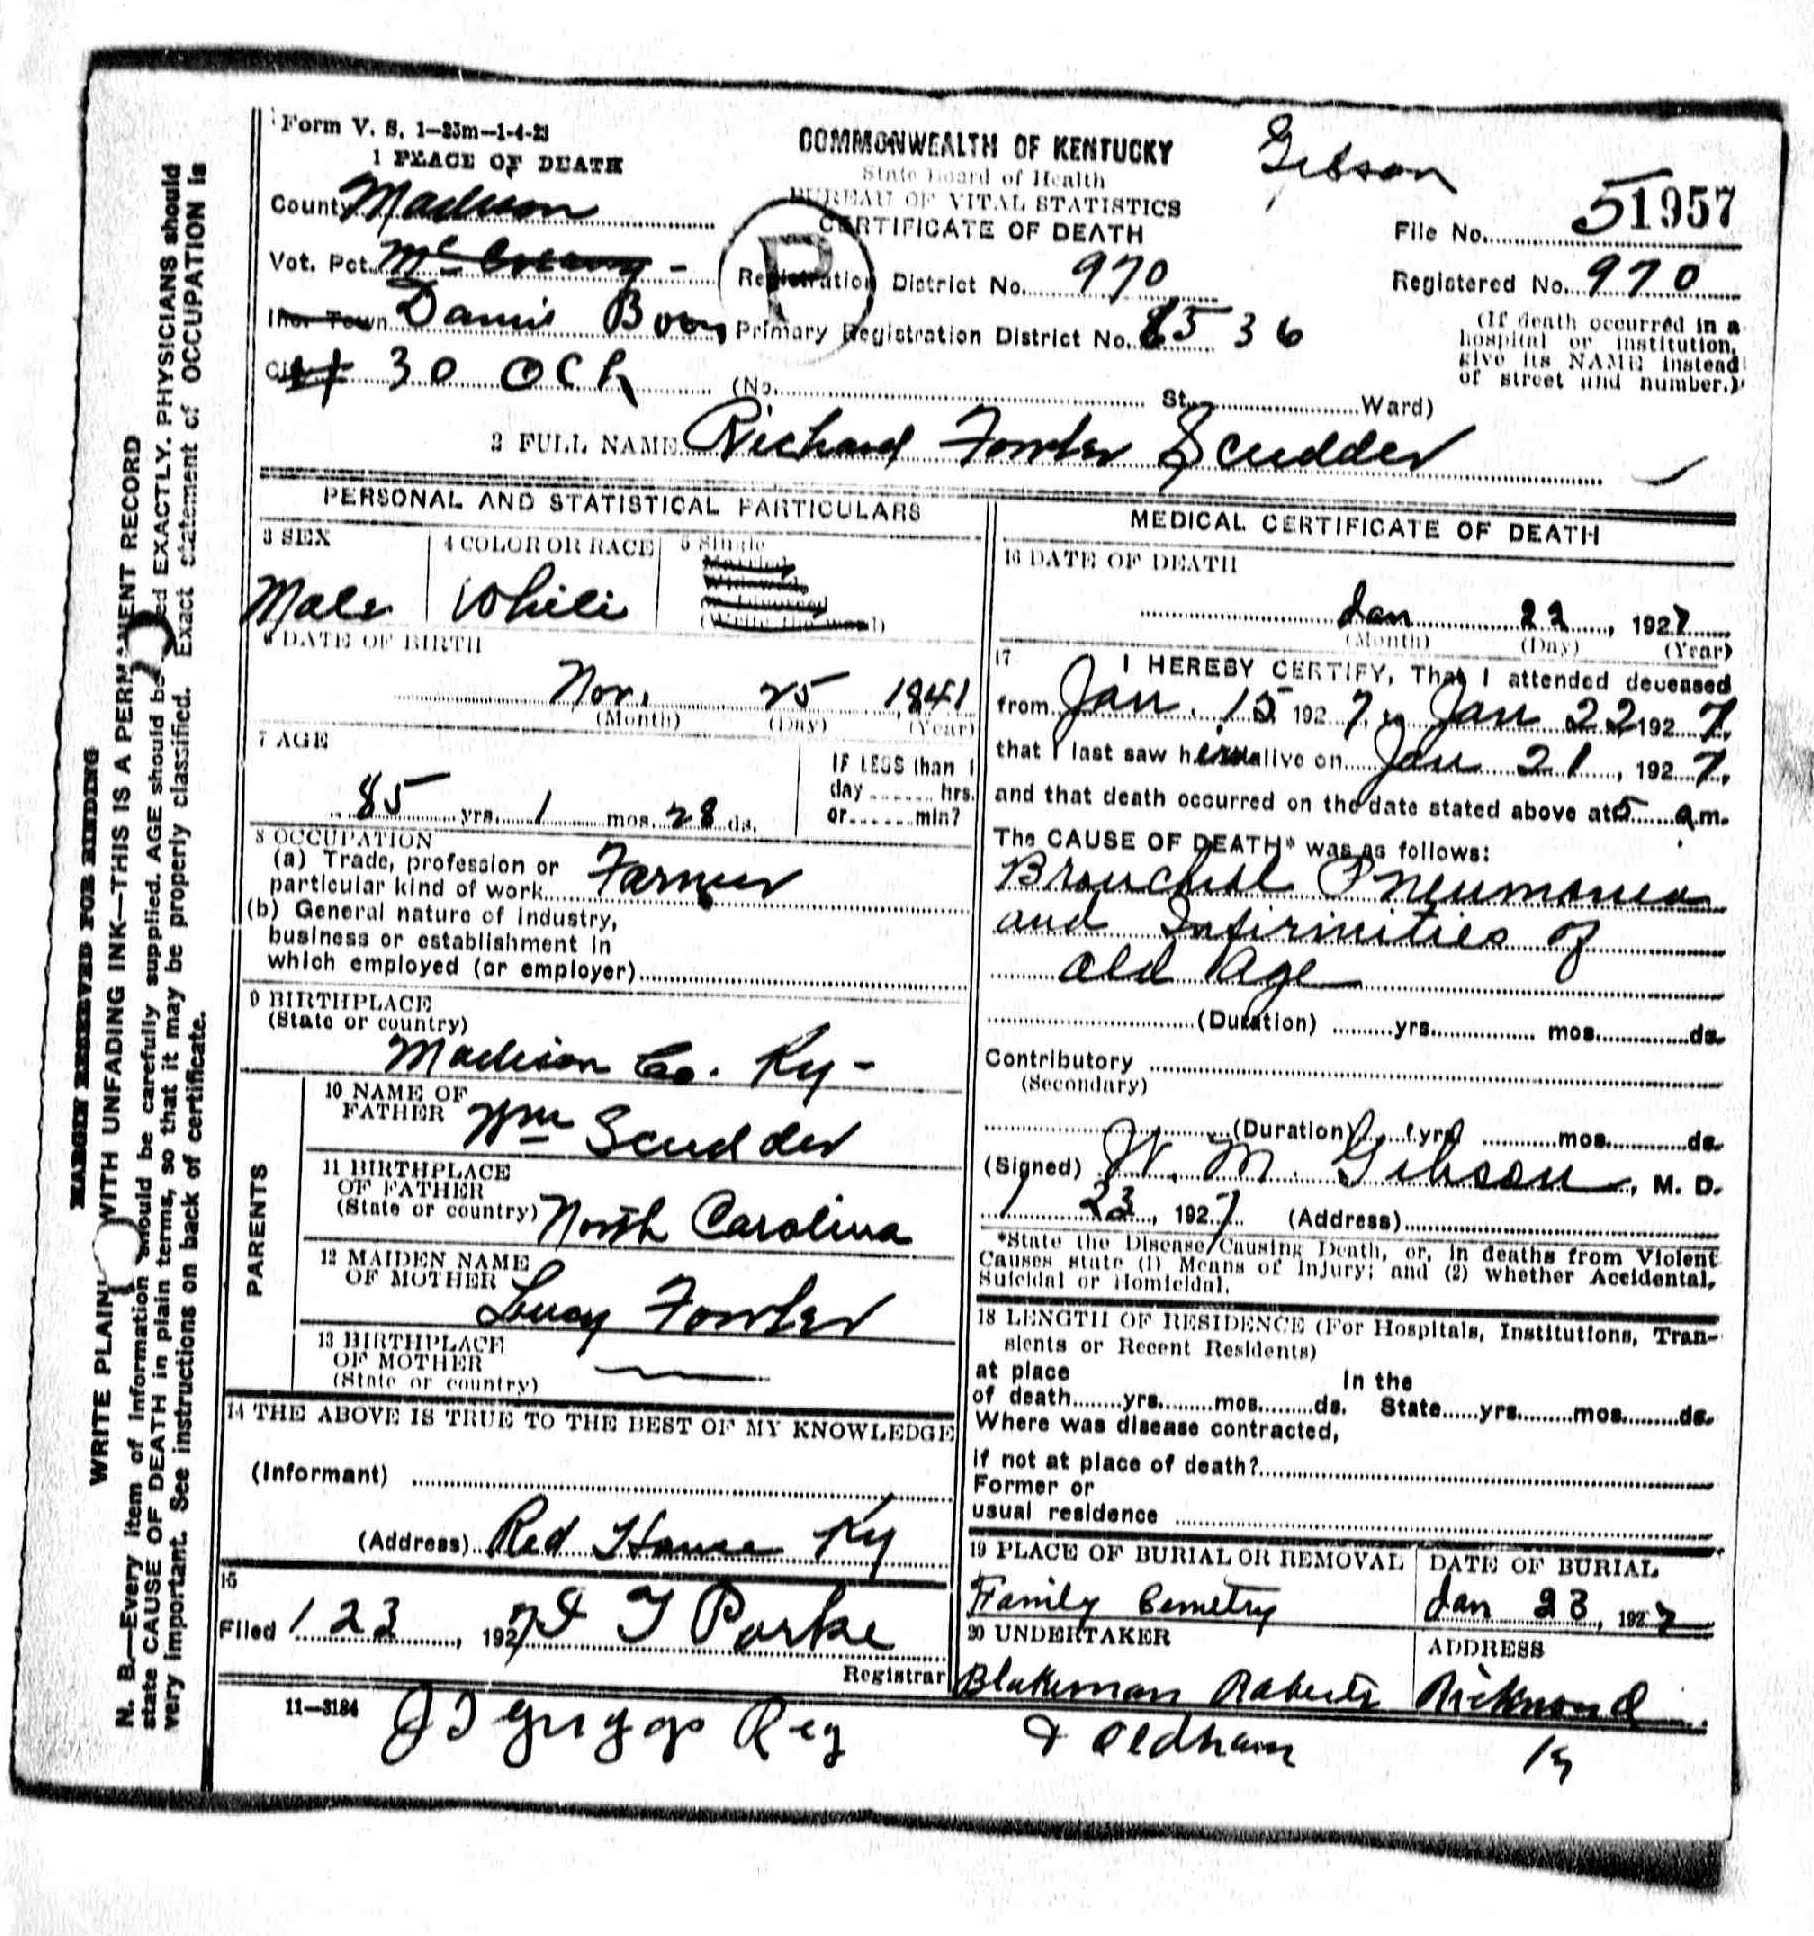 Form V. S. 1—25m—1-4-23
1 PLACE OF DEATH
COMMONWEALTH OF KENTUCKY
State Board of Health
BUREAU OF VITAL STATISTICS
CERTIFICATE OF DEATH
Gibson
File No. 51957
County Madison
Vot. Pct. McCreary -
R
Registration District No. 970
Registered No. 970
Inc. Town Boon
Primary Registration District No. 8536
(If death occurred in a
hospital or institution,
give its NAME instead
of street and number.)
City 30 och
(No. St. Ward)
2 FULL NAME Richard Fowler Scudder
PERSONAL AND STATISTICAL PARTICULARS
3 SEX
Male
4 COLOR OR RACE
White
5 Single
Married
Widowed
6 DATE OF BIRTH
Nov. 25 1841
(Month) (Day) (Year)
7 AGE
85 yrs. 1 mos. 28 ds.
IF LESS than 1
day hrs.
or min?
8 OCCUPATION
(a) Trade, profession or
particular kind of work Farmer
(b) General nature of industry,
business or establishment in
which employed (or employer)
9 BIRTHPLACE
(State or country)
Madison Co. Ky -
PARENTS
10 NAME OF
FATHER Wm Scudder
11 BIRTHPLACE
OF FATHER
(State or country) North Carolina
12 MAIDEN NAME
OF MOTHER Lucy Fowler
13 BIRTHPLACE
OF MOTHER
(State or country)
14 THE ABOVE IS TRUE TO THE BEST OF MY KNOWLEDGE
(Informant)
(Address) Red House Ky
15
Filed 1 23, 1927 T Parke
Registrar
11—3184
J T Griggs Reg
MEDICAL CERTIFICATE OF DEATH
16 DATE OF DEATH
Jan 22, 1927
(Month) (Day) (Year)
17 I HEREBY CERTIFY, That I attended deceased
from Jan. 15 1927, to Jan 22 1927,
that I last saw him alive on Jan 21, 1927,
and that death occurred on the date stated above at 5 a.m.
The CAUSE OF DEATH* was as follows:
Bronchial Pneumonia
and Infirmities of
old Age
(Duration) yrs. mos. ds.
Contributory
(Secondary)
(Duration) yrs. mos. ds.
(Signed) W. M. Gibson, M. D.
1 23, 1927 (Address)
*State the Disease Causing Death, or, in deaths from Violent
Causes state (1) Means of Injury; and (2) whether Accidental,
Suicidal or Homicidal.
18 LENGTH OF RESIDENCE (For Hospitals, Institutions, Tran-
sients or Recent Residents)
at place In the
of death yrs. mos. ds. State yrs. mos. ds.
Where was disease contracted,
if not at place of death?
Former or
usual residence
19 PLACE OF BURIAL OR REMOVAL
Family Cemetry
DATE OF BURIAL
Jan 23, 1927
20 UNDERTAKER
Blakeman Roberts
& Oldham
ADDRESS
Richmond
Ky
MARGIN RESERVED FOR BINDING
WRITE PLAINLY WITH UNFADING INK—THIS IS A PERMANENT RECORD
N. B.—Every item of information should be carefully supplied. AGE should be stated EXACTLY. PHYSICIANS should
state CAUSE OF DEATH in plain terms, so that it may be properly classified. Exact statement of OCCUPATION is
very important. See instructions on back of certificate.